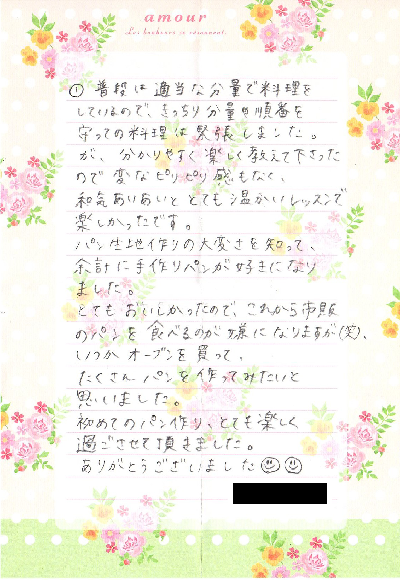 amour
① 普段は適当な分量で料理を
しているので、きっちり分量や順番を
守っての料理は緊張しました。
が、分かりやすく楽しく教えて下さった
ので変なピリピリ感もなく、
和気あいあいととても温かいレッスンで
楽しかったです。
パン生地作りの大変さを知って、
余計に手作りパンが好きになり
ました。
とてもおいしかったので、これから市販
のパンを食べるのが嫌になりますが(笑)、
いつかオーブンを買って、
たくさんパンを作ってみたいと
思いました。
初めてのパン作り、とても楽しく
過ごさせて頂きました。
ありがとうございました